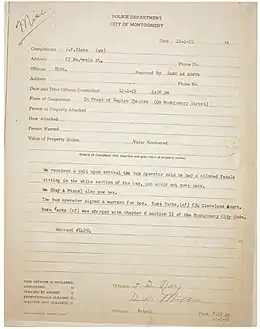 Misc
POLICE DEPARTMENT
CITY OF MONTGOMERY
Date 12-1-55 19
Complainant J.F. Blake (wm)
Address Phone No.
Offense Misc. Reported By Same as above
Address Phone No.
Date and Time Offense Committed 12-1-55 6:06 pm
Place of Occurrence In Front of Empire Theatre (On Montgomery Street)
Person or Property Attacked
How Attacked
Person Wanted
Value of Property Stolen Value Recovered
Details of Complaint (list, describe and give value of property stolen)
We received a call upon arrival the bus operator said he had a colored female
sitting in the white section of the bus, and would not move back.
We (Day & Mixon) also saw her.
The bus operator signed a warrant for her. Rosa Parks, (cf) 634 Cleveland Court.
Rosa Parks (cf) was charged with chapter 6 section 11 of the Montgomery City Code.
Warrant #14254
THIS OFFENSE IS DECLARED:
UNFOUNDED
CLEARED BY ARREST
EXCEPTIONALLY CLEARED
INACTIVE (NOT CLEARED)
Officers F. B. Day
D. W. Mixon
Division Patrol
Time 7:00 pm
12-1-55